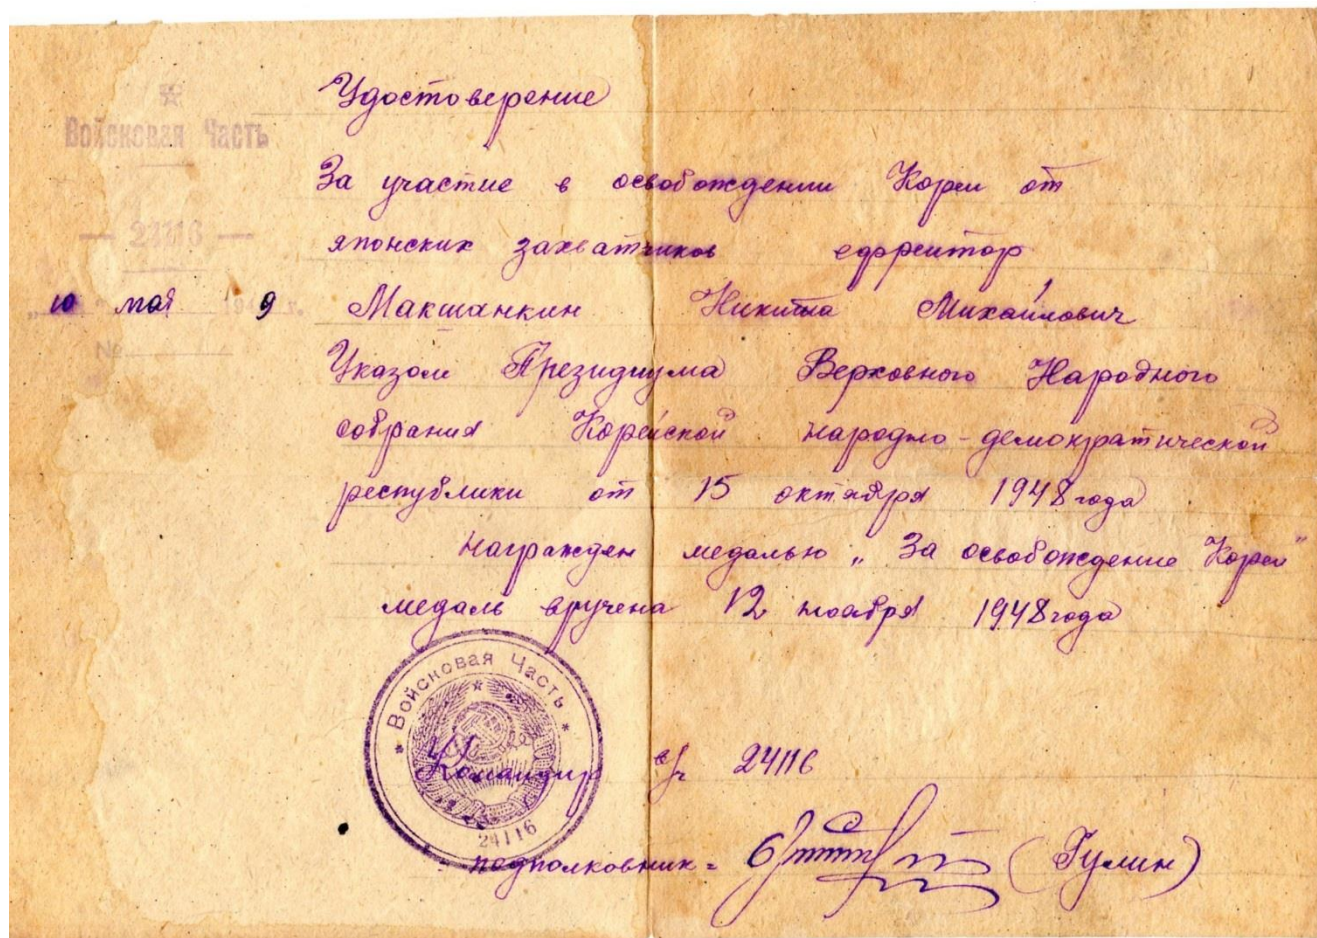 Войсковая Часть
— 24116 —
„10 мая 1949 г.
№
Удостоверение
За участие в освобождении Кореи от
японских захватчиков ефрейтор
Макшанкин Никитка Михайлович
Указом Президиума Верховного Народного
собрания Корейской народно-демократической
республики от 15 октября 1948 года
награжден медалью „За освобождение Кореи"
медаль вручена 12 ноября 1948 года
Войсковая Часть
24116
Командир в/ч 24116
подполковник = (Гулин)